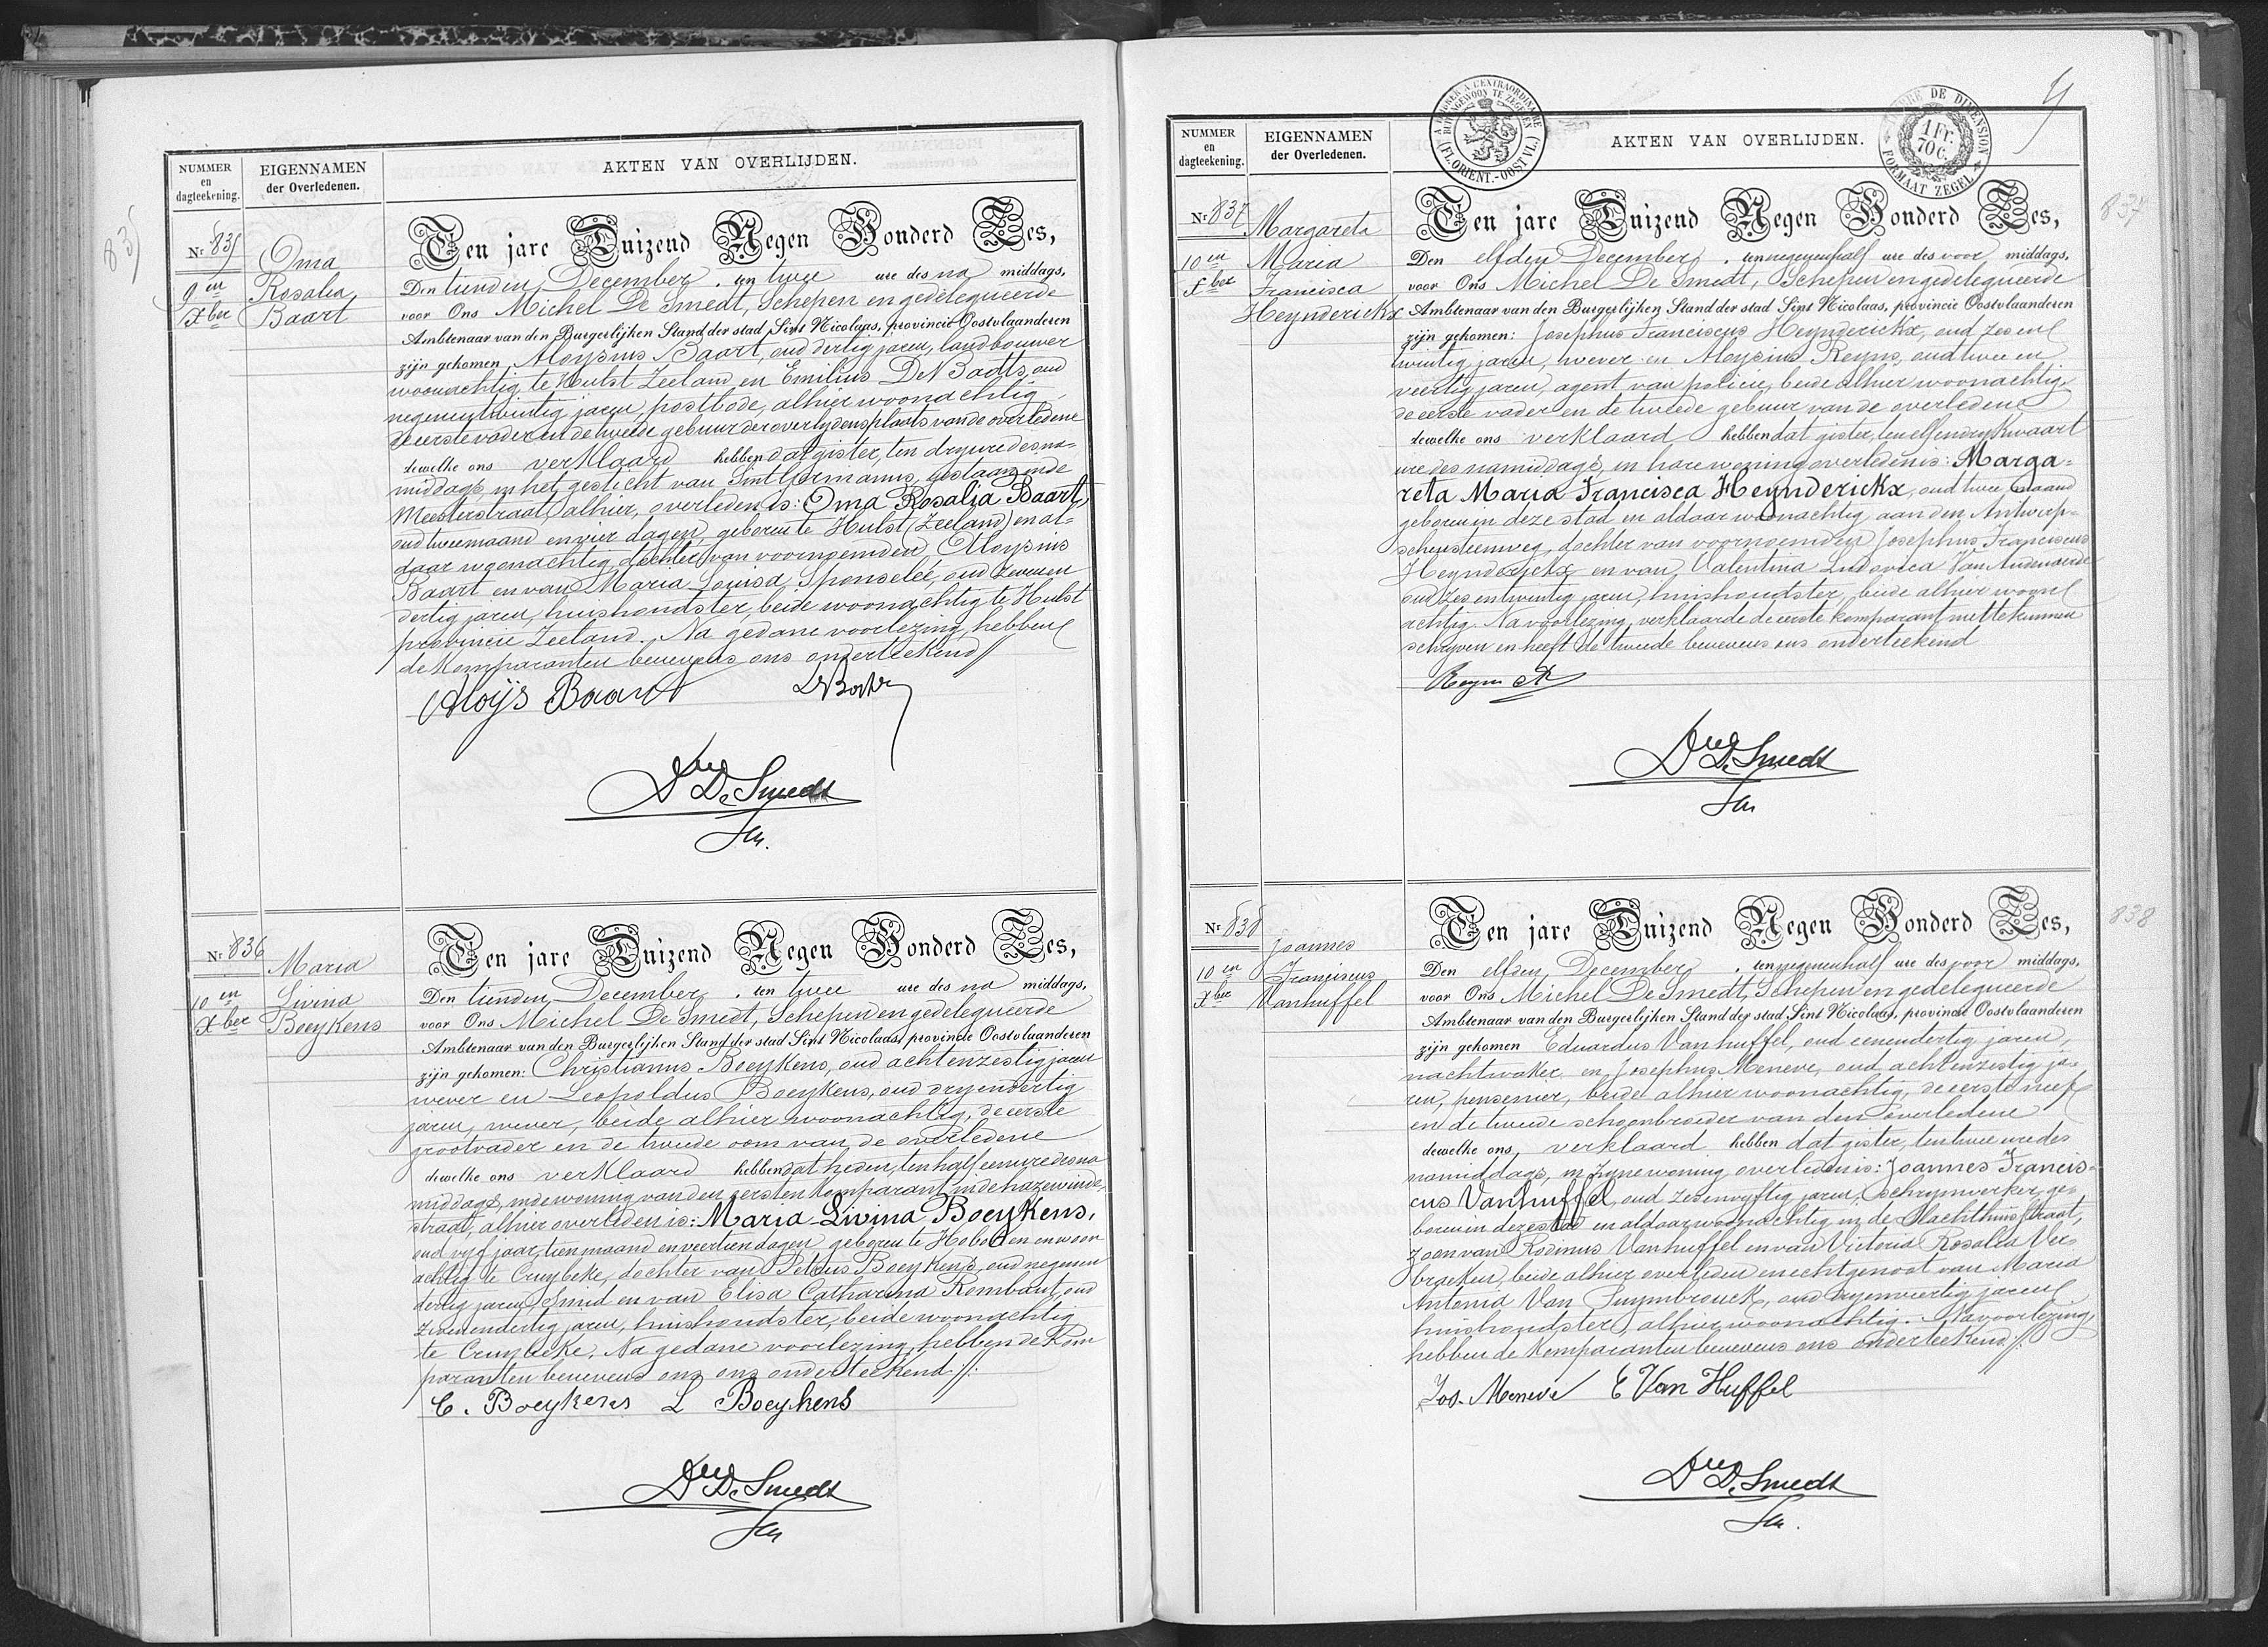 NUMMER
en
dagteekening.
EIGENNAMEN
der Overledenen.
AKTEN VAN OVERLIJDEN.
835
Nr 835
9en
Xber
Oma
Rosalia
Baart
Ten jare Duizend Negen Honderd Zes,
Den tienden December, ten twee ure des na middags,
voor Ons Michel De Smedt, Schepen en gedelegueerde
Ambtenaar van den Burgerlijken Stand der stad Sint Nicolaas, provincie Oostvlaanderen
zijn gekomen Aloysius Baart, oud dertig jaren, landbouwer
woonachtig te Hulst Zeeland en Emilius De Badts, oud
negenentwintig jaren, postbode, alhier woonachtig,
de eerste vader en de tweede gebuur der overlydensplaats van de overledene
dewelke ons verklaard hebben dat gister, ten dry ure des na-
middags, in het gesticht van Sint Germanus, gestaan in de
Meesterstraat, alhier, overleden is: Oma Rosalia Baart,
oud twee maand en vier dagen, geboren te Hulst (Zeeland) en al-
daar woonachtig, dochter van voornoemden Aloysius
Baart en van Maria Louisa Sponselee, oud zevenen
dertig jaren, huishoudster, beide woonachtig te Hulst
provincie Zeeland. Na gedane voorlezing, hebben
de komparanten benevens ons onderteekend //
Aloÿs Baart
De Smedt
Sch.
Nr 836
10en
Xber
Maria
Livina
Boeykens
Ten jare Duizend Negen Honderd Zes,
Den tienden December, ten twee ure des na middags,
voor Ons Michel De Smedt, Schepen en gedelegueerde
Ambtenaar van den Burgerlijken Stand der stad Sint Nicolaas, provincie Oostvlaanderen
zijn gekomen: Christianus Boeykens, oud achtenzestig jaren
wever en Leopoldus Boeykens, oud dryendertig
jaren, wever, beide alhier woonachtig, de eerste
grootvader en de tweede oom van de overledene
dewelke ons verklaard hebben dat heden, ten half eenure des na
middags, in de woning van den eersten komparant, in de hazewinde-
straat, alhier overleden is: Maria Livina Boeykens,
oud vyf jaar, tien maand en veertien dagen, geboren te Hoboken en woon
achtig te Cruybeke, dochter van Petrus Boeykens, oud negenen
dertig jaren, smid en van Elisa Catharina Rombaut, oud
zevenendertig jaren, huishoudster, beide woonachtig
te Cruybeke. Na gedane voorlezing, hebben de kom
paranten benevens ons ons onderteekend //.
C. Boeykens L Boeykens
De Smedt
Sch
NUMMER
en
dagteekening.
EIGENNAMEN
der Overledenen.
AKTEN VAN OVERLIJDEN.
A TIMBRER A L'EXTRAORDINAIRE
BUITENGEWOON TE ZEGELEN
(FL. ORIENT.-OOST VL.)
TIMBRE DE DIMENSION
1 Fr.
70 C.
FORMAAT ZEGEL
837
Nr 837
10en
Xber
Margareta
Maria
Francisca
Heynderickx
Ten jare Duizend Negen Honderd Zes,
Den elfden December, ten negenenhalf ure des voor middags,
voor Ons Michel De Smedt, Schepen en gedelegueerde
Ambtenaar van den Burgerlijken Stand der stad Sint Nicolaas, provincie Oostvlaanderen
zijn gekomen: Josephus Franciscus Heynderickx, oud zesen
twintig jaren, wever en Aloysius Reyns, oud twee en
veertig jaren, agent van policie, beide alhier woonachtig,
de eerste vader en de tweede gebuur van de overledene
dewelke ons verklaard hebben dat gister, ten elf en dry kwaart
ure des namiddags, in hare woning overleden is: Marga-
reta Maria Francisca Heynderickx, oud twee maand
geboren in deze stad en aldaar woonachtig aan den Antwerp-
schensteenweg, dochter van voornoemden Josephus Franciscus
Heynderyckx en van Valentina Ludovica Van Audenaerde
oud zes entwintig jaren, huishoudster, beide alhier woon
achtig. Na voorlezing, verklaarde de eerste komparant niet te kunnen
schryven en heeft de tweede benevens ons onderteekend
De Smedt
Sch
838
Nr 838
10en
Xber
Joannes
Franciscus
Vanhuffel
Ten jare Duizend Negen Honderd Zes,
Den elfden December, ten negenenhalf ure des voor middags,
voor Ons Michel De Smedt, Schepen en gedelegueerde
Ambtenaar van den Burgerlijken Stand der stad Sint Nicolaas, provincie Oostvlaanderen
zijn gekomen Eduardus Vanhuffel, oud eenendertig jaren,
nachtwaker en Josephus Meneve, oud achtenzestig ja-
ren, pensenier, beide alhier woonachtig, de eerste neef
en de tweede schoonbroeder van den overledene
dewelke ons verklaard hebben dat gister, ten twee ure des
namiddags, in zyne woning overleden is: Joannes Francis-
cus Vanhuffel, oud zesenvyftig jaren, schrynwerker, ge-
boren in deze stad en aldaar woonachtig in de Slachthuisstraat,
zoon van Rosinus Vanhuffel en van Victoria Rosalia Ver-
braeken, beide alhier overleden en echtgenoot van Maria
Antonia Van Puymbrouck, oud dryenveertig jaren
huishoudster, alhier woonachtig. Na voorlezing,
hebben de komparanten benevens ons onderteekend //.
Jos. Meneve E Van Huffel
De Smedt
Sch.